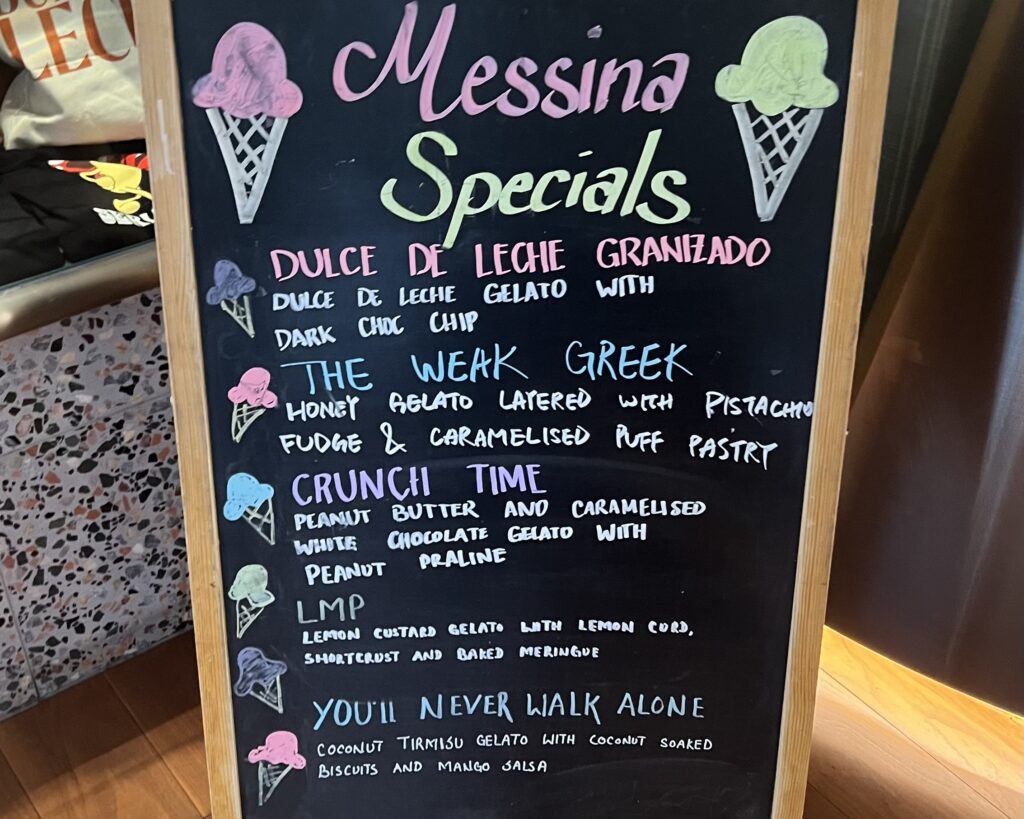 LECH
Messina
Specials
DULCE DE LECHE GRANIZADO
DULCE DE LECHE GELATO WITH
DARK CHOC CHIP
THE WEAK GREEK
HONEY GELATO LAYERED WITH PISTACHIO
FUDGE & CARAMELISED PUFF PASTRY
CRUNCH TIME
PEANUT BUTTER AND CARAMELISED
WHITE CHOCOLATE GELATO WITH
PEANUT PRALINE
LMP
LEMON CUSTARD GELATO WITH LEMON CURD,
SHORTCRUST AND BAKED MERINGUE
YOU'll NEVER WALK ALONE
COCONUT TIRMISU GELATO WITH COCONUT SOAKED
BISCUITS AND MANGO SALSA